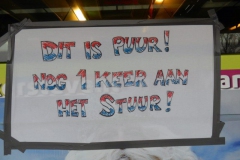 DIT IS PUUR!
NOG 1 KEER AAN
HET STUUR!